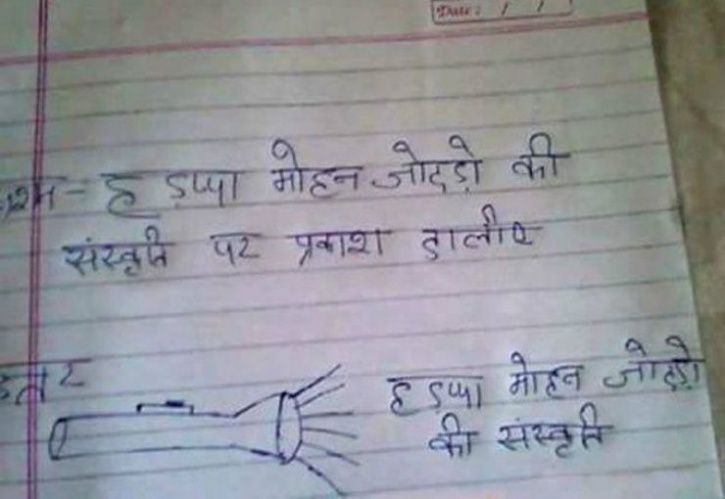 Date: / /
प्रश्न - हडप्पा मोहन जोदड़ो की
संस्कृति पर प्रकाश डालीए
उत्तर
हडप्पा मोहन जोदड़ो
की संस्कृति